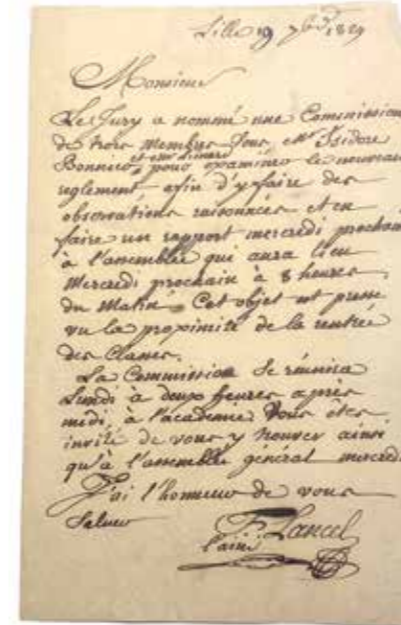 Lille 19 7bre 1829
Monsieur
Le Jury a nommé une Commission
de trois membres Vous, Mr Isidore
Bonnier et Mr
pour examiner le nouveau
reglement afin d'y faire des
observations raisonnées et en
faire un rapport mercredi prochain
à l'assemblée qui aura lieu
Mercredi prochain à 8 heures
du Matin. Cet objet est pressé
vu la proximité de la rentrée
des Classes.
La Commission se réunira
Lundi à deux heures après
midi, à l'academie Vous etes
invité de vous y trouver ainsi
qu'à l'assemblée général mercredi
J'ai l'honneur de vous
Saluer
F. Lancel
l'ainé